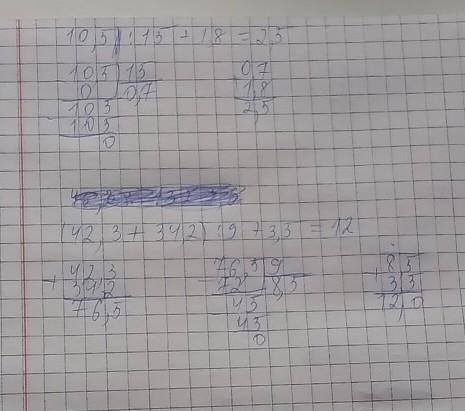 10,5 : 15 + 1,8 = 2,5
105 | 15
0 | 0,7
- 105
105
0
0,7
1,8
2,5
(42,3 + 34,2) : 9 + 3,5 = 12
+ 42,3
34,2
76,5
- 76,5 | 9
72 | 8,5
- 45
45
0
+ 8,5
3,5
12,0